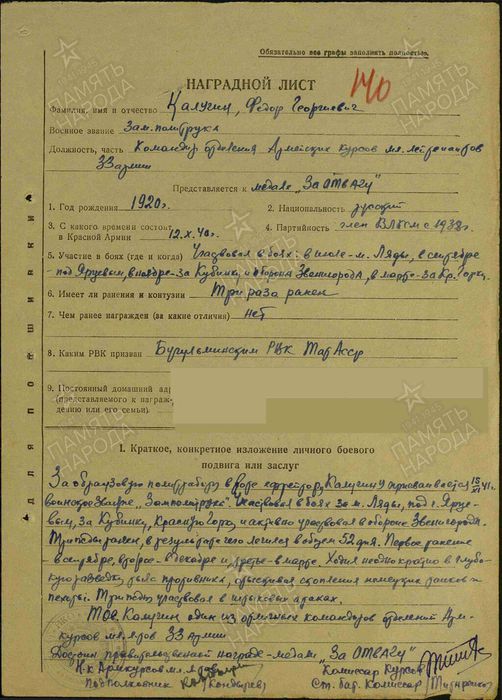 Обязательно все графы заполнять полностью.
НАГРАДНОЙ ЛИСТ
140
Фамилия, имя и отчество Калугин, Федор Георгиевич
Военное звание Зам. политрука
Должность, часть Командир отделения Армейских курсов мл. лейтенантов
33 армии
Представляется к медали „За ОТВАГУ"
1. Год рождения 1920 г. 2. Национальность русский
3. С какого времени состоит в Красной Армии 12.X.40 г. 4. Партийность член ВЛКСМ с 1938 г.
5. Участие в боях (где и когда) Участвовал в боях: в июле - м. Ляды, в сентябре
под Ярцевым, в ноябре - за Кубинку и оборона Звенигорода, в марте - за Кр. Горку
6. Имеет ли ранения и контузии Три раза ранен
7. Чем ранее награжден (за какие отличия) нет
8. Каким РВК призван Бугульминским РВК ТатАсср
9. Постоянный домашний адр
(представляемого к награж-
дению или его семьи)
Для подшивки
I. Краткое, конкретное изложение личного боевого
подвига или заслуг
За образцовую политработу в роте Калугину присваивается 15 XI 41 г.
воинское звание „Замполитрука". Участвовал в боях за м. Ляды, под г. Ярце-
вым, за Кубинку, Красную Горку и активно участвовал в обороне Звенигорода.
Трижды ранен, в результате чего лечился в общем 52 дня. Первое ранение
в сентябре, второе - в декабре и третье - в марте. Ходил неоднократно в глубо-
кую разведку, тыл противника, отыскивал скопления немецких танков и
пехоты. Трижды участвовал в штыковых атаках.
Тов. Калугин один из отличных командиров отделений Арм-
курсов мл. л-ров 33 Армии
Достоин правительственной награды - медали „За ОТВАГУ"
Н-к Армкурсов мл. л-ров Комиссар Курсов
подполковник (Кондырев) Ст. бат. Комиссар
ПАМЯТЬ
НАРОДА
ПАМЯТЬ
НАРОДА
ПАМЯТЬ
НАРОДА
ПАМЯТЬ
НАРОДА